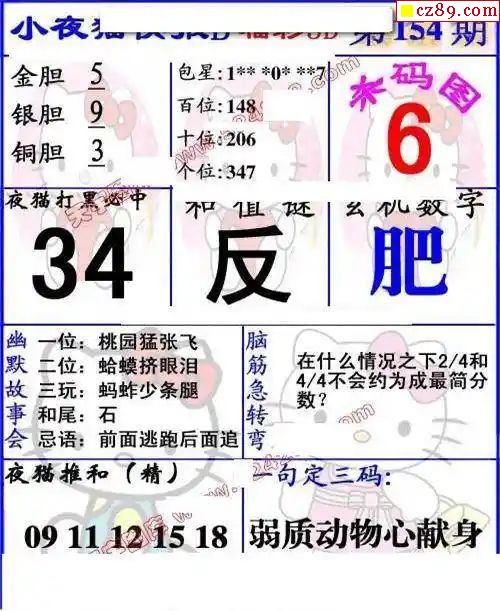 cz89.com
第154期
金胆 5
银胆 9
铜胆 3
包星:1** *0* **7
百位:148
十位:206
个位:347
6
夜猫打黑必中
34
和值谜
反
玄机数字
肥
幽默故事会
一位：桃园猛张飞
二位：蛤蟆挤眼泪
三玩：蚂蚱少条腿
和尾：石
忌语：前面逃跑后面追
脑筋急转弯
在什么情况之下2/4和
4/4不会约为成最简分
数?
夜猫推和（精）
09 11 12 15 18
一句定三码:
弱质动物心献身